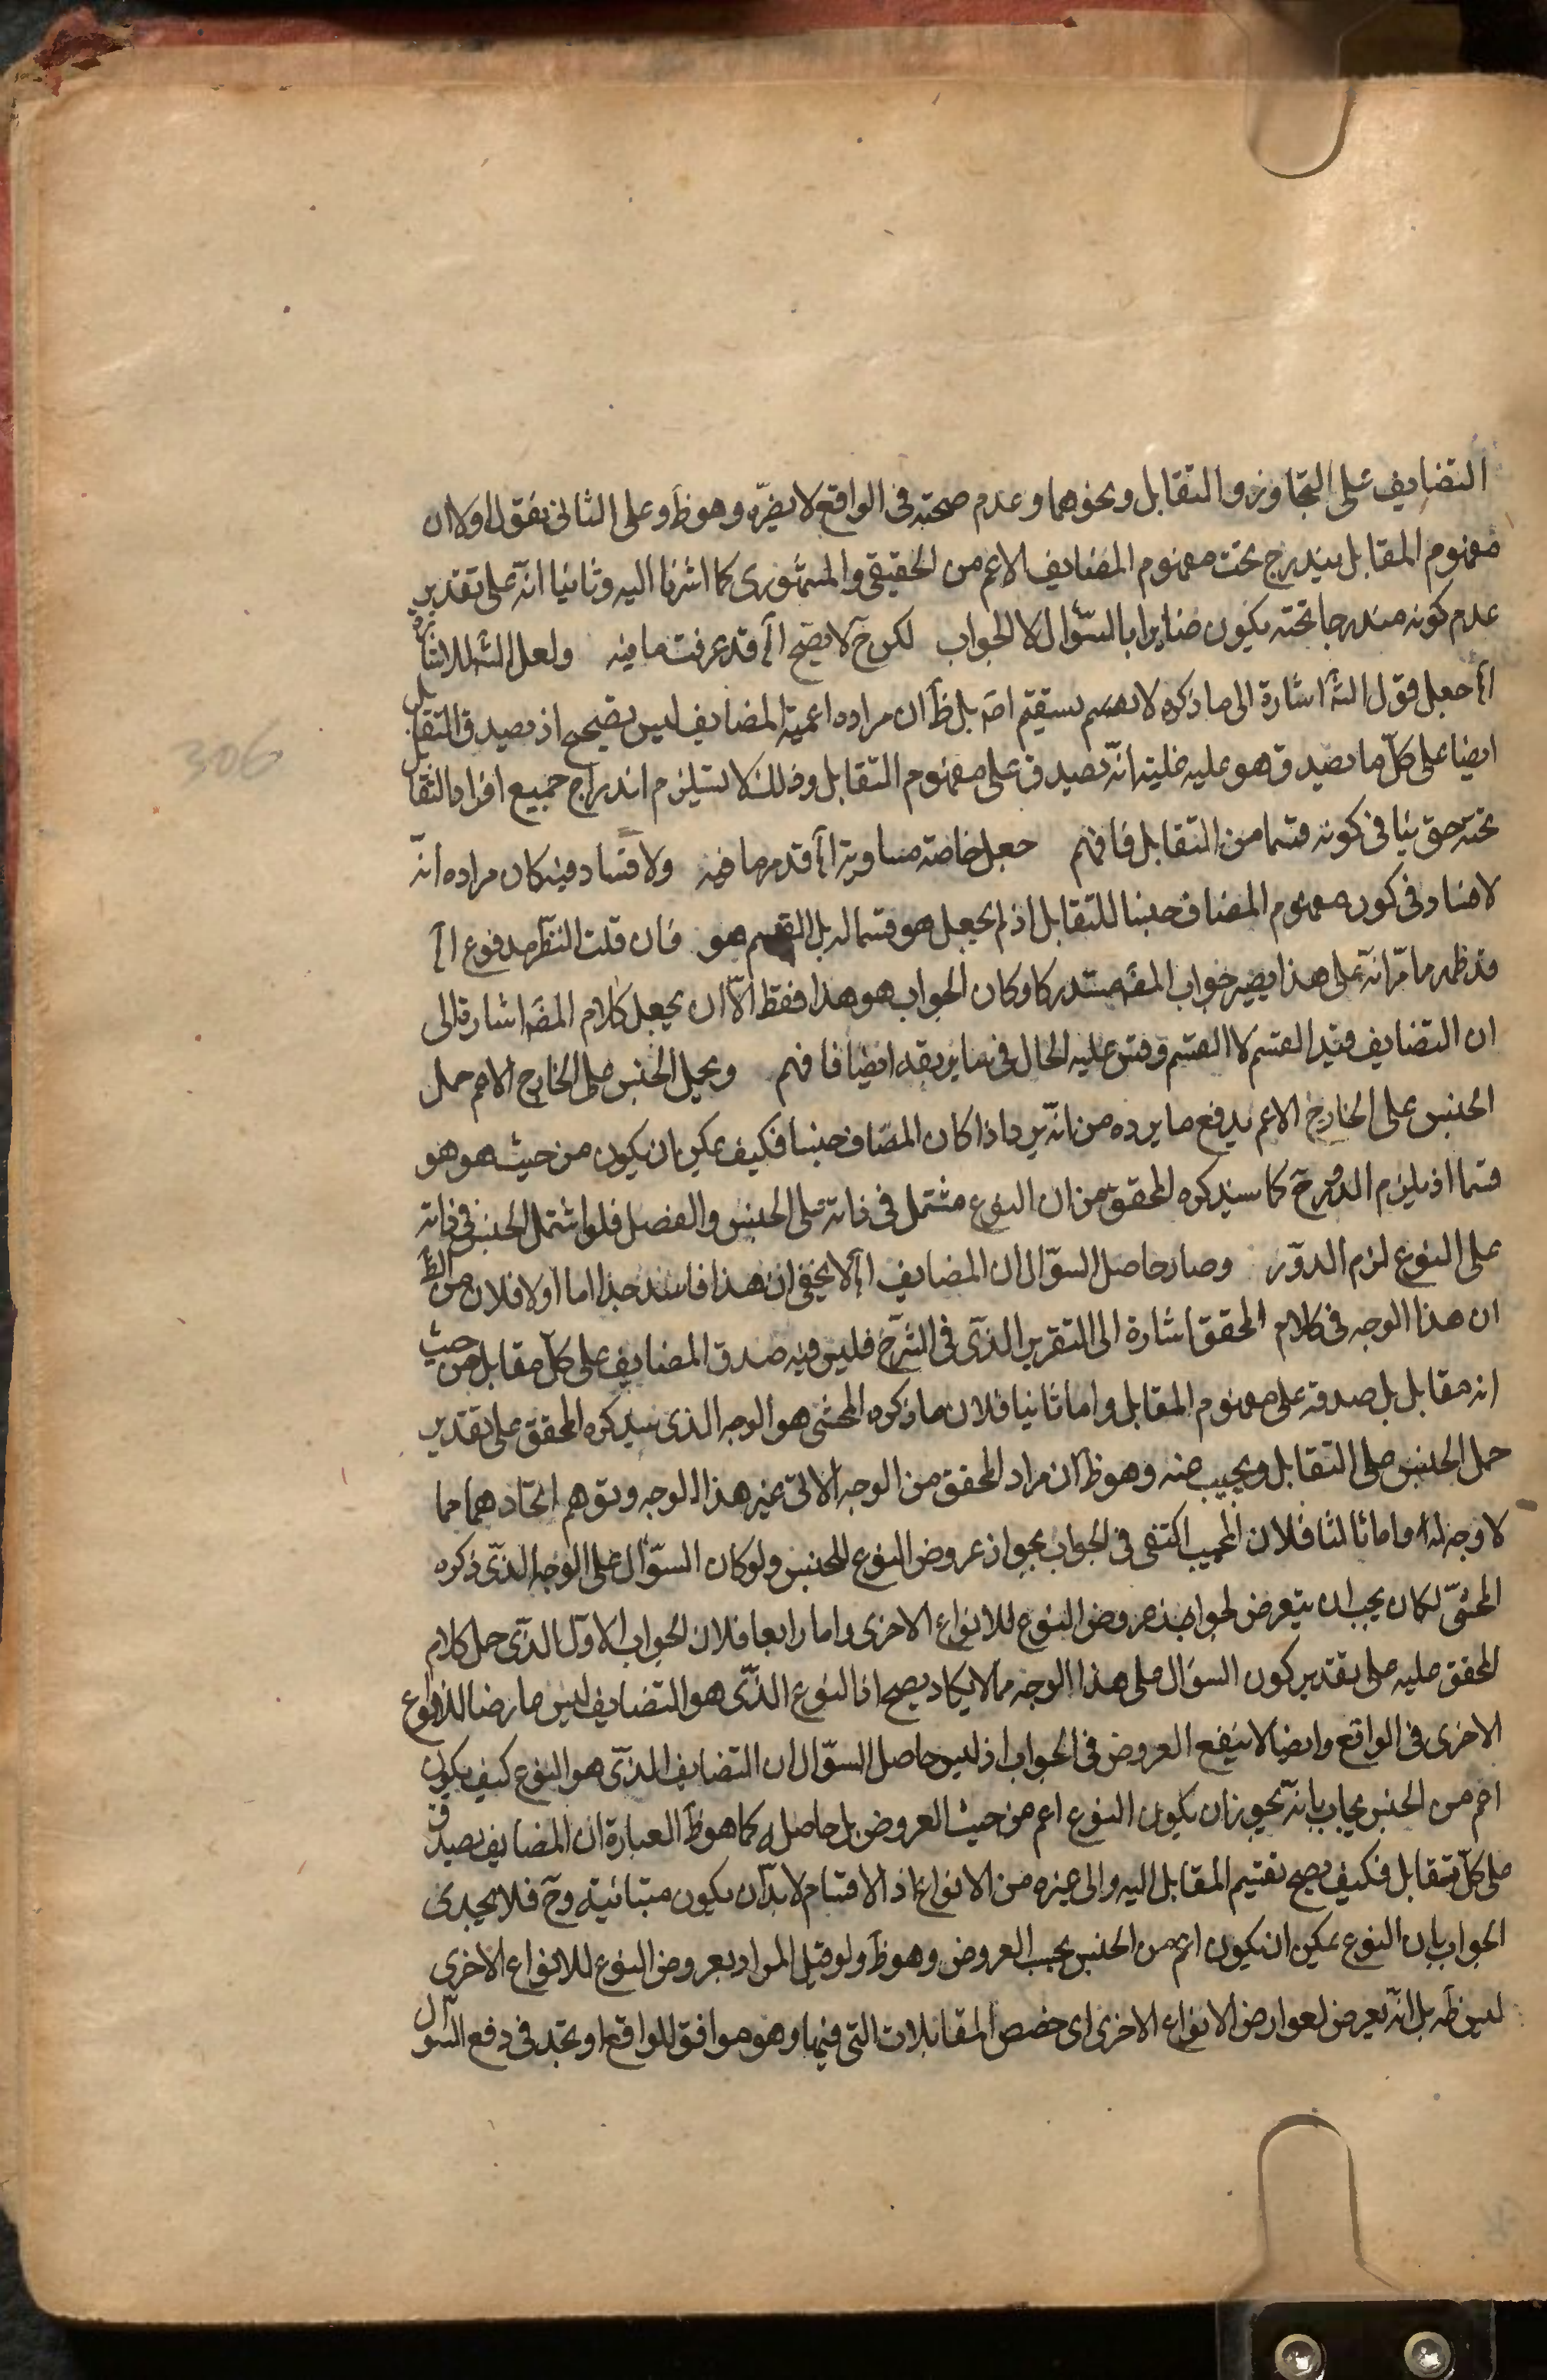 التضايف على التجاوز والتقابل ونحوهما وعدم صحته فى الواقع لا يضرّه وهو ظ وعلى الثانى نقول اولا ان
مفهوم المقابل يندرج تحت مفهوم المضايف الاعم من الحقيقى والمشهورى كما اشرنا اليه وثانيا انه على تقدير
عدم كونه مندرجا تحته يكون ضايرا بالسؤال لا الجواب لكن ح لا يصح آه قد عرفت ما فيه ولعل الشه للاشارة
آه جعل قول الشه اشارة الى ما ذكره لا يستقيم اصه بل ظ ان مراده اعمية المضايف ليس بصحيح اذ يصدق التقابل
ايضا على كل ما يصدق هو عليه غايته انه يصدق على مفهوم التقابل وذلك لا يستلزم اندراج جميع افراد التقابل
تحته حتى ينافى كونه قسما من التقابل فافهم جعل خاصة مساوية آه قد مر ما فيه ولا فساد فيه كان مراده انه
لا فساد فى كون مفهوم المضاف جنسا للتقابل اذ لم يجعل هو قسما له بل القسم هو فان قلت النظر مدفوع آه
قد ظهر مما مر انه على هذا يصير جواب المصه مستدركا وكان الجواب هو هذا فقط الا ان يجعل كلام المصه اشارة الى
ان التضايف قيد القسم لا القسم وقس عليه الحال فى ما يزيفه ايضا فافهم ويحمل الجنس على الخارج الاعم حمل
الجنس على الخارج الاعم يدفع ما يرده من انه يرد اذا كان المضاف جنسا فكيف يمكن ان يكون من حيث هو هو
قسما اذ يلزم الدور ح كما سيذكره المحقق من ان النوع مشتمل فى ذاته على الجنس والفصل فلو اشتمل الجنس فى ذاته
على النوع لزم الدور وصار حاصل السؤال ان المضايف آه لا يخفى ان هذا فاسد جدا اما اولا فلان من الظ
ان هذا الوجه فى كلام المحقق اشارة الى التقرير الذى فى الشرح فليس فيه صدق المضايف على كل مقابل من حيث
انه مقابل بل صدقه على مفهوم المقابل واما ثانيا فلان ما ذكره المحشى هو الوجه الذى سيذكره المحقق على تقدير
حمل الجنس على التقابل ويجيب عنه وهو ظ ان مراد المحقق من الوجه الاتى غير هذا الوجه وتوهم اتحادهما مما
لا وجه له واما ثالثا فلان المجيب اكتفى فى الجواب بجواز عروض النوع للجنس ولو كان السؤال على الوجه الذى ذكره
المحشى لكان يجب ان يتعرض لجواز عروض النوع للانواع الاخرى واما رابعا فلان الجواب الاول الذى حمل كلام
المحقق عليه على تقدير كون السؤال على هذا الوجه مما لا يكاد يصح اذ النوع الذى هو التضايف ليس عارضا للانواع
الاخرى فى الواقع وايضا لا ينفع العروض فى الجواب اذ ليس حاصل السؤال ان التضايف الذى هو النوع كيف يكون
اعم من الجنس يجاب بانه يجوز ان يكون النوع اعم من حيث العروض بل حاصله كما هو ظ العبارة ان المضايف يصدق
على كل متقابل فكيف يصح تقسيم المقابل اليه والى غيره من الانواع اذ الاقسام لا بد ان يكون متباينة وح فلا يجدى
الجواب بان النوع يمكن ان يكون اعم من الجنس بحسب العروض وهو ظ ولو قيل المراد بعروض النوع للانواع الاخرى
ليس ظه بل انه يعرض لعوارض الانواع الاخرى اى حصص المقابلات التى فيها وهو موافق للواقع او يجد فى دفع السؤال
306